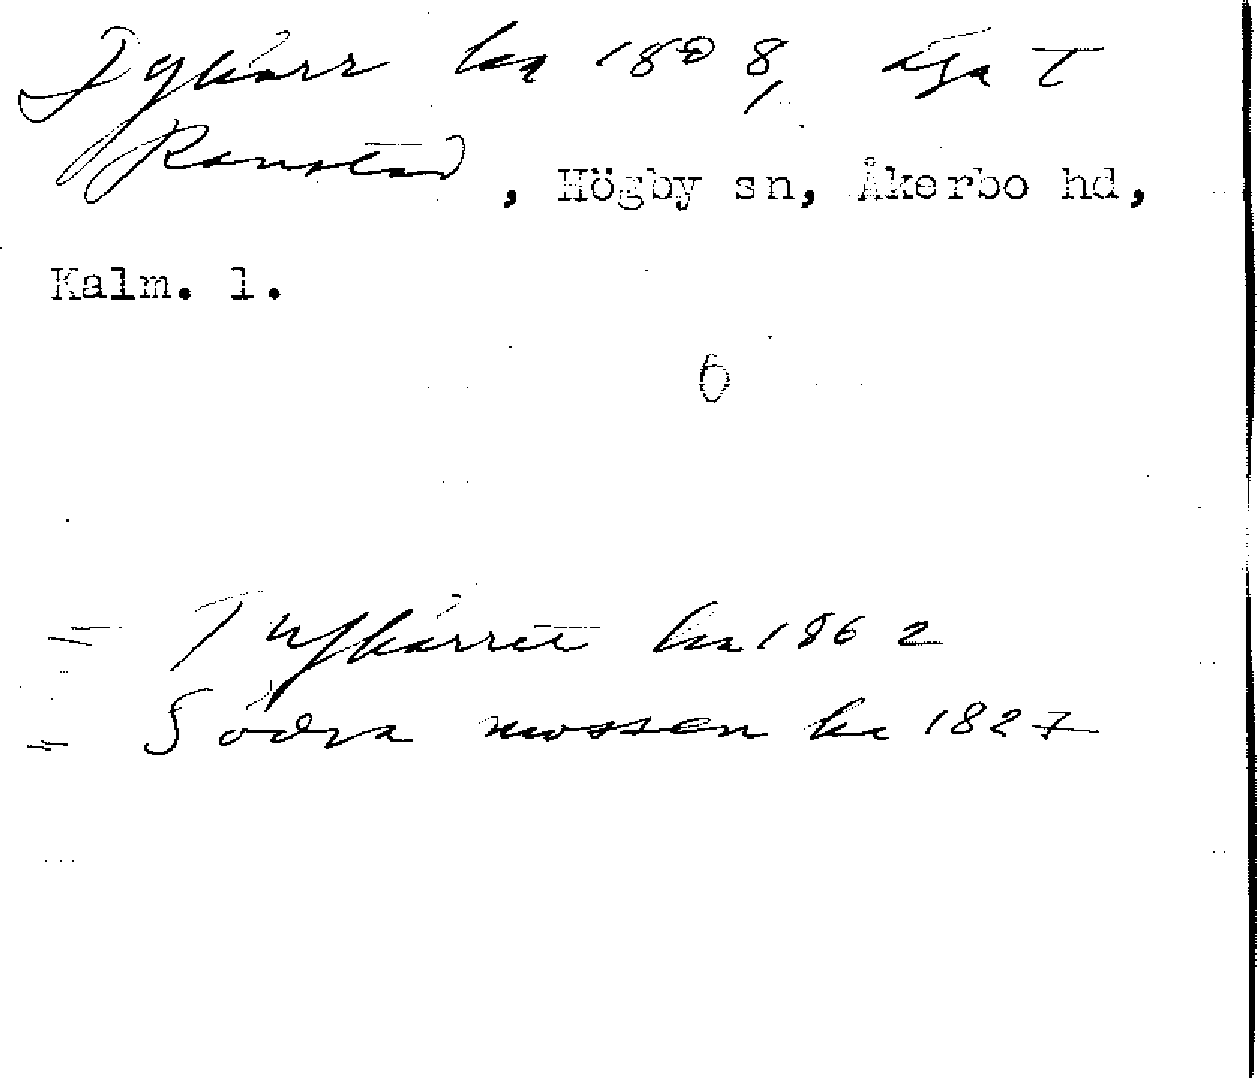 Tykärr ha 1808, äga T
Ramstad, Högby sn, Åkerbo hd,
Kalm. l.
6
= Tufkärret ha 1862
= Södra mossen ha 1827